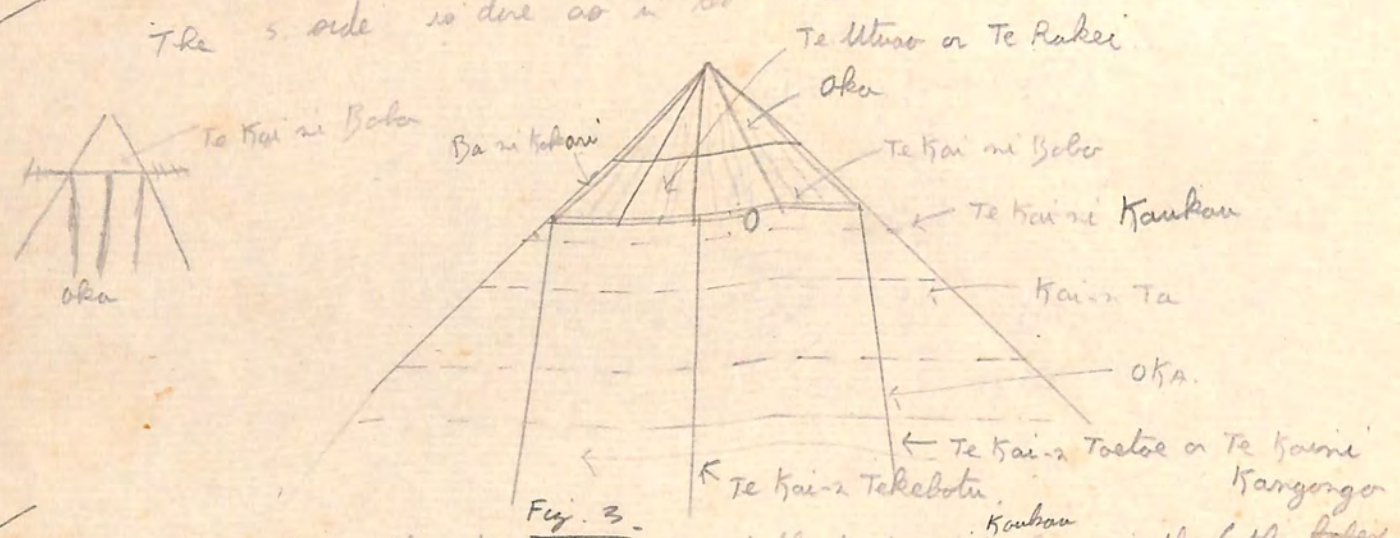 The S. side is done as in
Te Utuao or Te Rakei
Oka
Te Kai ni Baba
Ba ni Kakari
Te Kai ni Baba
Te Kai ni Kaukau
O
oka
Kai-n Ta
OKA.
Te Kai-n Taetae or Te Kaini
Kangongo
Te Kai-n Tekebotu
Fig. 3.
Kaukau
of the